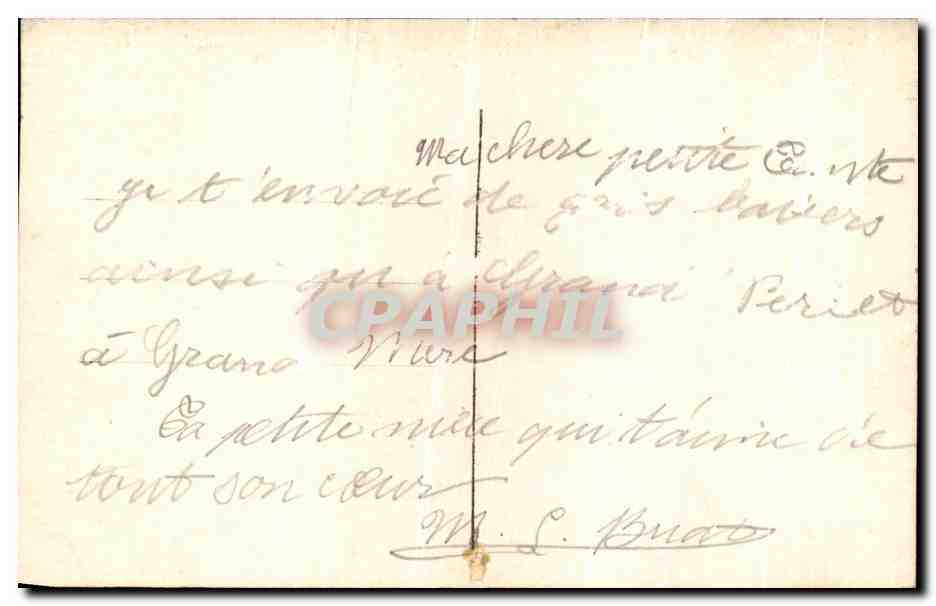 Ma chere petite Tante
je t'envoie de gros baisers
ainsi qu'à Grand Per et
à Grand Mere
Ta petite niece qui t'aime de
tout son cœur
M. L. Briat
CPAPHIL